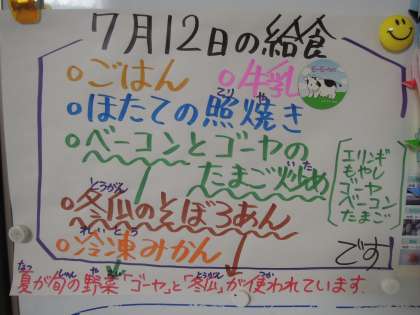 7月12日の給食
ごはん 牛乳
ほたての照焼き
ベーコンとゴーヤの
たまご炒め
エリンギ
もやし
ゴーヤ
ベーコン
たまご
冬瓜のそぼろあん
冷凍みかん
です!
夏が旬の野菜「ゴーヤ」と「冬瓜」が使われています。